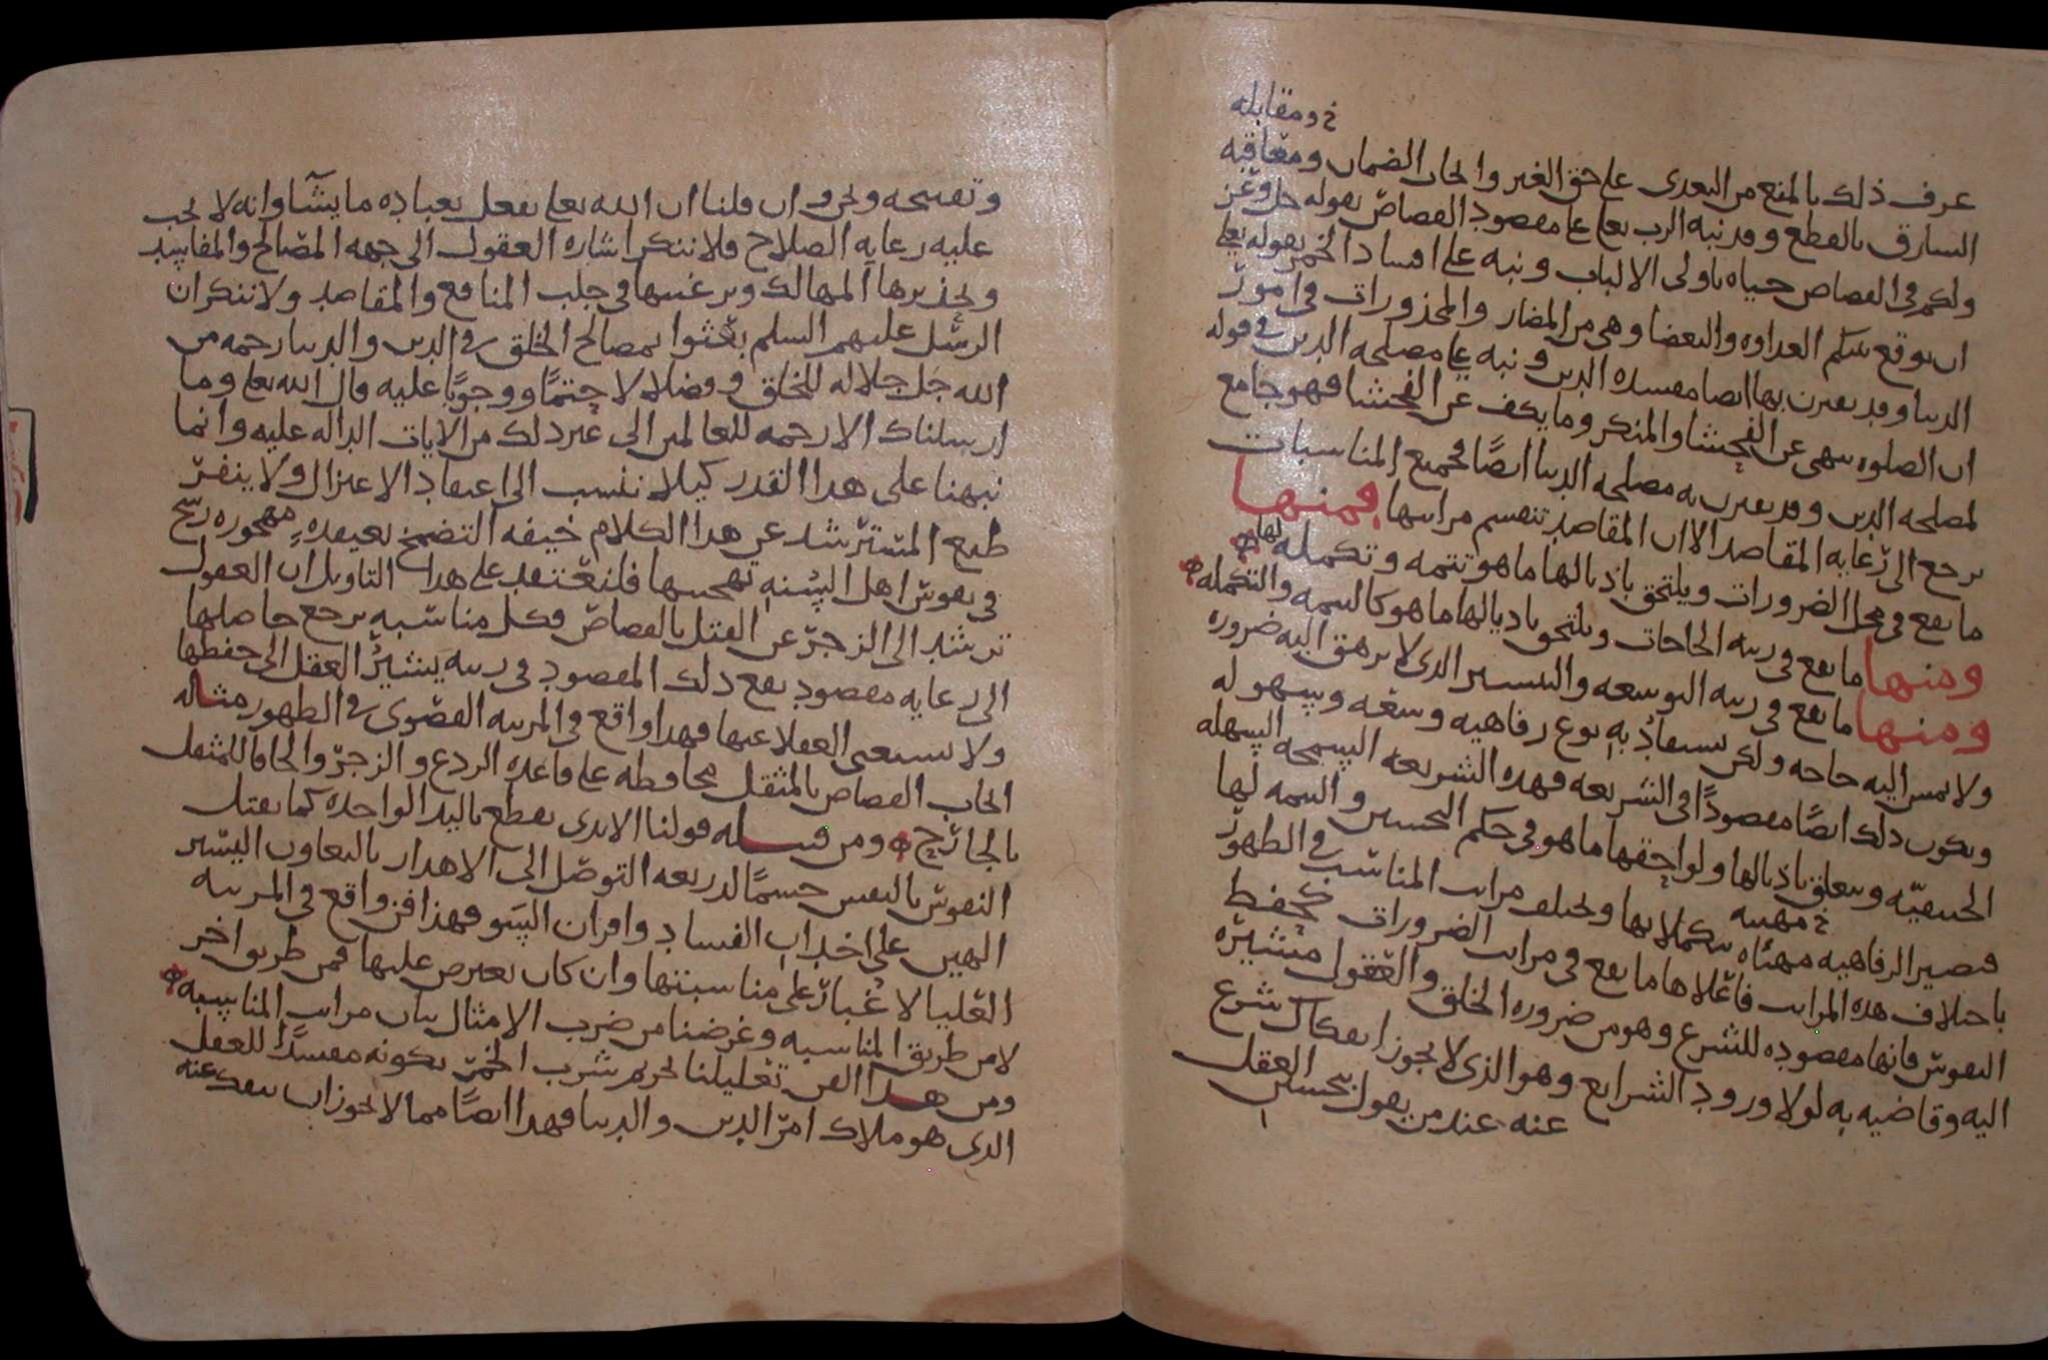 خ ومقابله
عرف ذلك بالمنع من التعدي على حق الغير وايجاب الضمان ومعاقبة
السارق بالقطع وقد نبه الرب تعالى على مقصود القصاص بقوله جل وعز
ولكم في القصاص حياه ياولي الالباب ونبه على افساد الخمر بقوله تعالى
ان يوقع بينكم العداوه والبغضا وهي من المضار والمحذورات في امور
الدنيا وقد يقترن بها ايضا مفسده الدين ونبه على مصلحه الدين في قوله
ان الصلوه تنهى عن الفحشا والمنكر وما يكف عن الفحشا فهو جامع
لمصلحه الدين وقد يقترن به مصلحه الدنيا ايضًا فجميع المناسبات
يرجع الى رعايه المقاصد الا ان المقاصد تنقسم مراتبها فمنها
ما يقع في محل الضرورات ويلتحق باذيالها ما هو تتمه وتكمله لها
ومنها ما يقع في رتبه الحاجات ويلتحق باذيالها ما هو كالتتمه والتكمله
ومنها ما يقع في رتبه التوسعه والتيسير الذي لا يرهق اليه ضروره
ولا تمس اليه حاجه ولكن يستفاد به نوع رفاهيه وسعه وسهوله
ويكون ذلك ايضًا مقصودًا في الشريعه فهذه الشريعه السمحه السهله
الحنيفيّه ويتعلق باذيالها ولواحقها ما هو في حكم التحسين والتتمه لها
فتصير الرفاهيه مهيّاه بتكملاتها وتختلف مراتب المناسب في الطهور
خ مهنيه
باختلاف هذه المراتب فاعلاها ما يقع في مراتب الضرورات كحفظ
النفوس فانها مقصوده للشرع وهو من ضروره الخلق والعقول مشيره
اليه وقاضيه به لولا ورود الشرايع وهو الذي لا يجوز انفكاك شرع
عنه عند من يقول بتحسين العقل
وتقبيحه ونحن وان قلنا ان الله تعالى يفعل بعباده ما يشآ وانه لا يجب
عليه رعايه الصلاح فلا ننكر اشاره العقول الى جهه المصالح والمفاسد
وتحذيرها المهالك وترغيبها في جلب المنافع والمقاصد ولا ننكر ان
الرسل عليهم السلم بعثوا بمصالح الخلق في الدين والدنيا رحمه من
الله جل جلاله للخلق وفضلا لا حتمًا ووجوبًا عليه قال الله تعالى وما
ارسلناك الا رحمه للعالمين الى غير ذلك من الايات الداله عليه وانما
نبهنا على هذا القدر كيلا ننسب الى اعتقاد الاعتزال ولا ينفر
طبع المسترشد عن هذا الكلام خيفه التضمخ بعقيدهٍ مهجوره رسخ
في نفوس اهل السُنه تهجينها فلنعتقد على هذا التاويل ان العقول
ترشد الى الزجر عن القتل بالقصاص وكل مناسبه يرجع حاصلها
الى رعايه مقصود يقع ذلك المقصود في رتبه يشير العقل الى حفظها
ولا يستغنى العقلا عنها فهذا واقع في المرتبه القصوى في الطهور مثاله
ايجاب القصاص بالمثقل محافظه على قاعده الردع والزجر والحاقا للمثقل
بالجارح ومن قبيله قولنا الايدي يقطع باليد الواحده كما يقتل
النفوس بالنفس حسمًا لذريعه التوصل الى الاهدار بالتعاون اليسير
الهين على اخدان الفساد واقران السو فهذا فن واقع في المرتبه
العليا لا غبار على مناسبتها وان كان يعترض عليها فمن طريق اخر
لا من طريق المناسبه وغرضنا من ضرب الامثال بيان مراتب المناسبه
ومن هذا الفن تعليلنا تحريم شرب الخمر بكونه مفسدًا للعقل
الذي هو ملاك امر الدين والدنيا فهذا ايضًا مما لا يجوز ان ينفك عنه